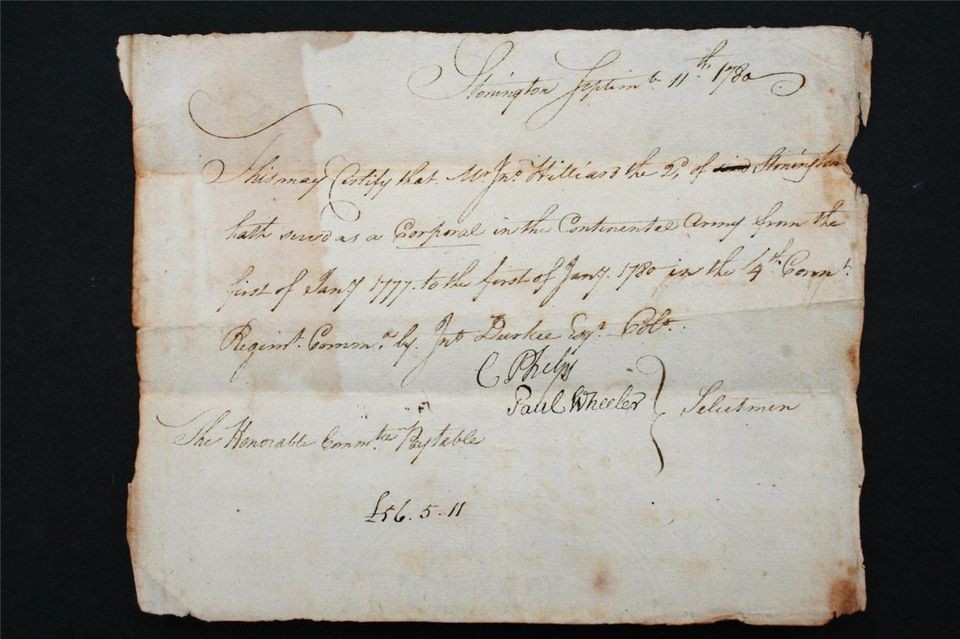 Stonington Septim.br 11th 1780
This may Certify that Mr Jno Hilliard the 2d, of Stonington
hath servd as a Corporal in the Continental Army from the
first of Jany 1777. to the first of Jany. 1780 in the 4th Connt.
Regimt. Commd. by Jno Durkee Esqr. Colo.
C Phelps
Paul Wheeler } Selectmen
The Honorable Commtee Paytable
£56.5.11